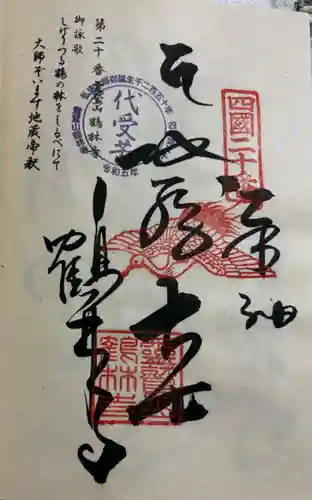 第二十番霊鷲山鶴林寺
御詠歌
しげりつる鶴の林をしるべにて
大師ぞいます地蔵帝釈
四國二十番
奉納
地蔵大士
鶴林寺
代受苦
弘法大師御誕生千二百五十年
霊鷲山鶴林寺